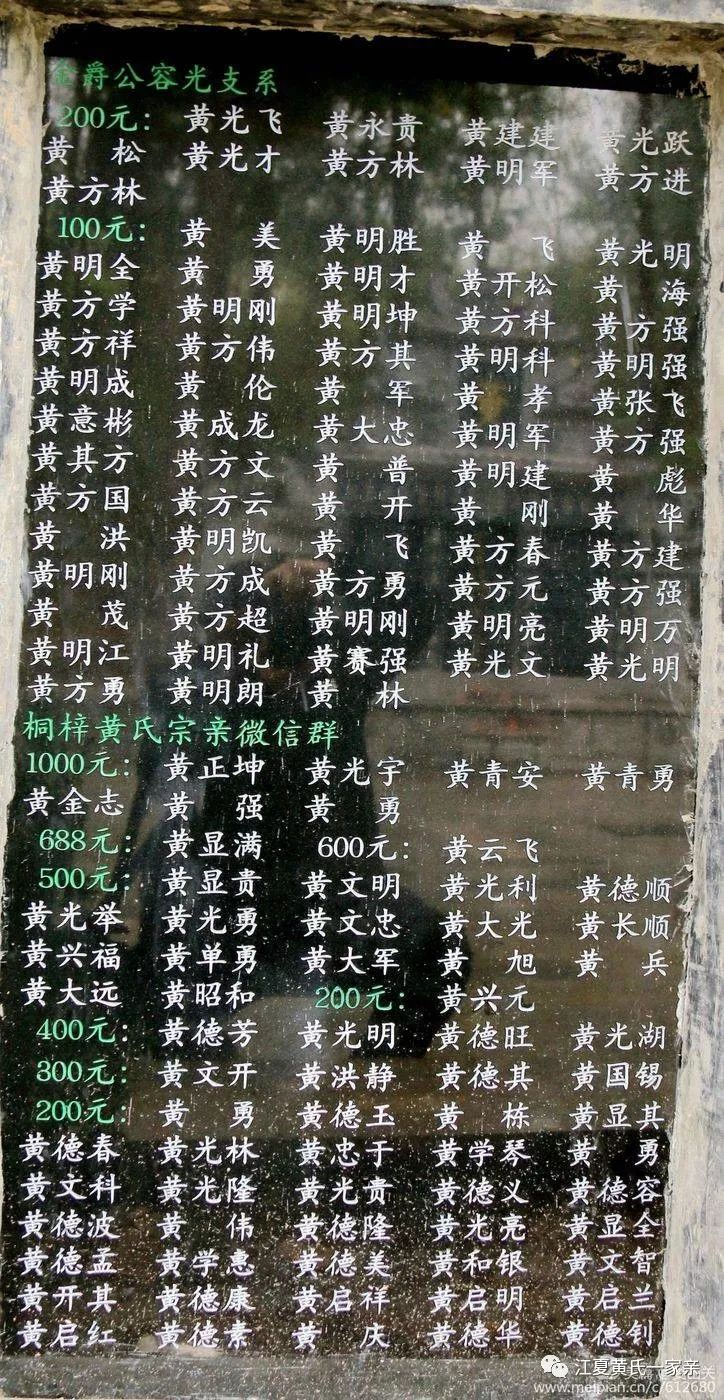 金爵公容光支系
200元: 黄光飞 黄永贵 黄建建 黄光跃
黄 松 黄光才 黄方林 黄明军 黄方进
黄方林
100元: 黄 美 黄明胜 黄 飞 黄光明
黄明全 黄 勇 黄明才 黄开松 黄 海
黄方学 黄明刚 黄明坤 黄方科 黄方强
黄方祥 黄方伟 黄方其 黄明科 黄明强
黄明成 黄 伦 黄 军 黄 孝 黄张飞
黄意彬 黄成龙 黄大忠 黄明军 黄方强
黄其万 黄方文 黄 普 黄明建 黄 彪
黄方国 黄方云 黄 开 黄 刚 黄 华
黄 洪 黄明凯 黄 飞 黄方春 黄方建
黄明刚 黄方成 黄方勇 黄方元 黄方强
黄 茂 黄方超 黄明刚 黄明亮 黄明万
黄明江 黄明礼 黄赛强 黄光文 黄光明
黄方勇 黄明朗 黄 林
桐梓黄氏宗亲微信群
1000元: 黄正坤 黄光宇 黄青安 黄青勇
黄金志 黄 强 黄 勇
688元: 黄显满 600元: 黄云飞
500元: 黄显贵 黄文明 黄光利 黄德顺
黄光举 黄光勇 黄文忠 黄大光 黄长顺
黄兴福 黄单勇 黄大军 黄 旭 黄 兵
黄大远 黄昭和 200元: 黄兴元
400元: 黄德芳 黄光明 黄德旺 黄光湖
300元: 黄文开 黄洪静 黄德其 黄国锡
200元: 黄 勇 黄德玉 黄 栋 黄显其
黄德春 黄光林 黄忠于 黄学琴 黄 勇
黄文科 黄光隆 黄光贵 黄德义 黄德容
黄德波 黄 伟 黄德隆 黄光亮 黄显全
黄德孟 黄学惠 黄德美 黄和银 黄文智
黄开其 黄德康 黄启祥 黄启明 黄启兰
黄启红 黄德素 黄 庆 黄德华 黄德钊
江夏黄氏一家亲
www.meipian.cn/c/612680